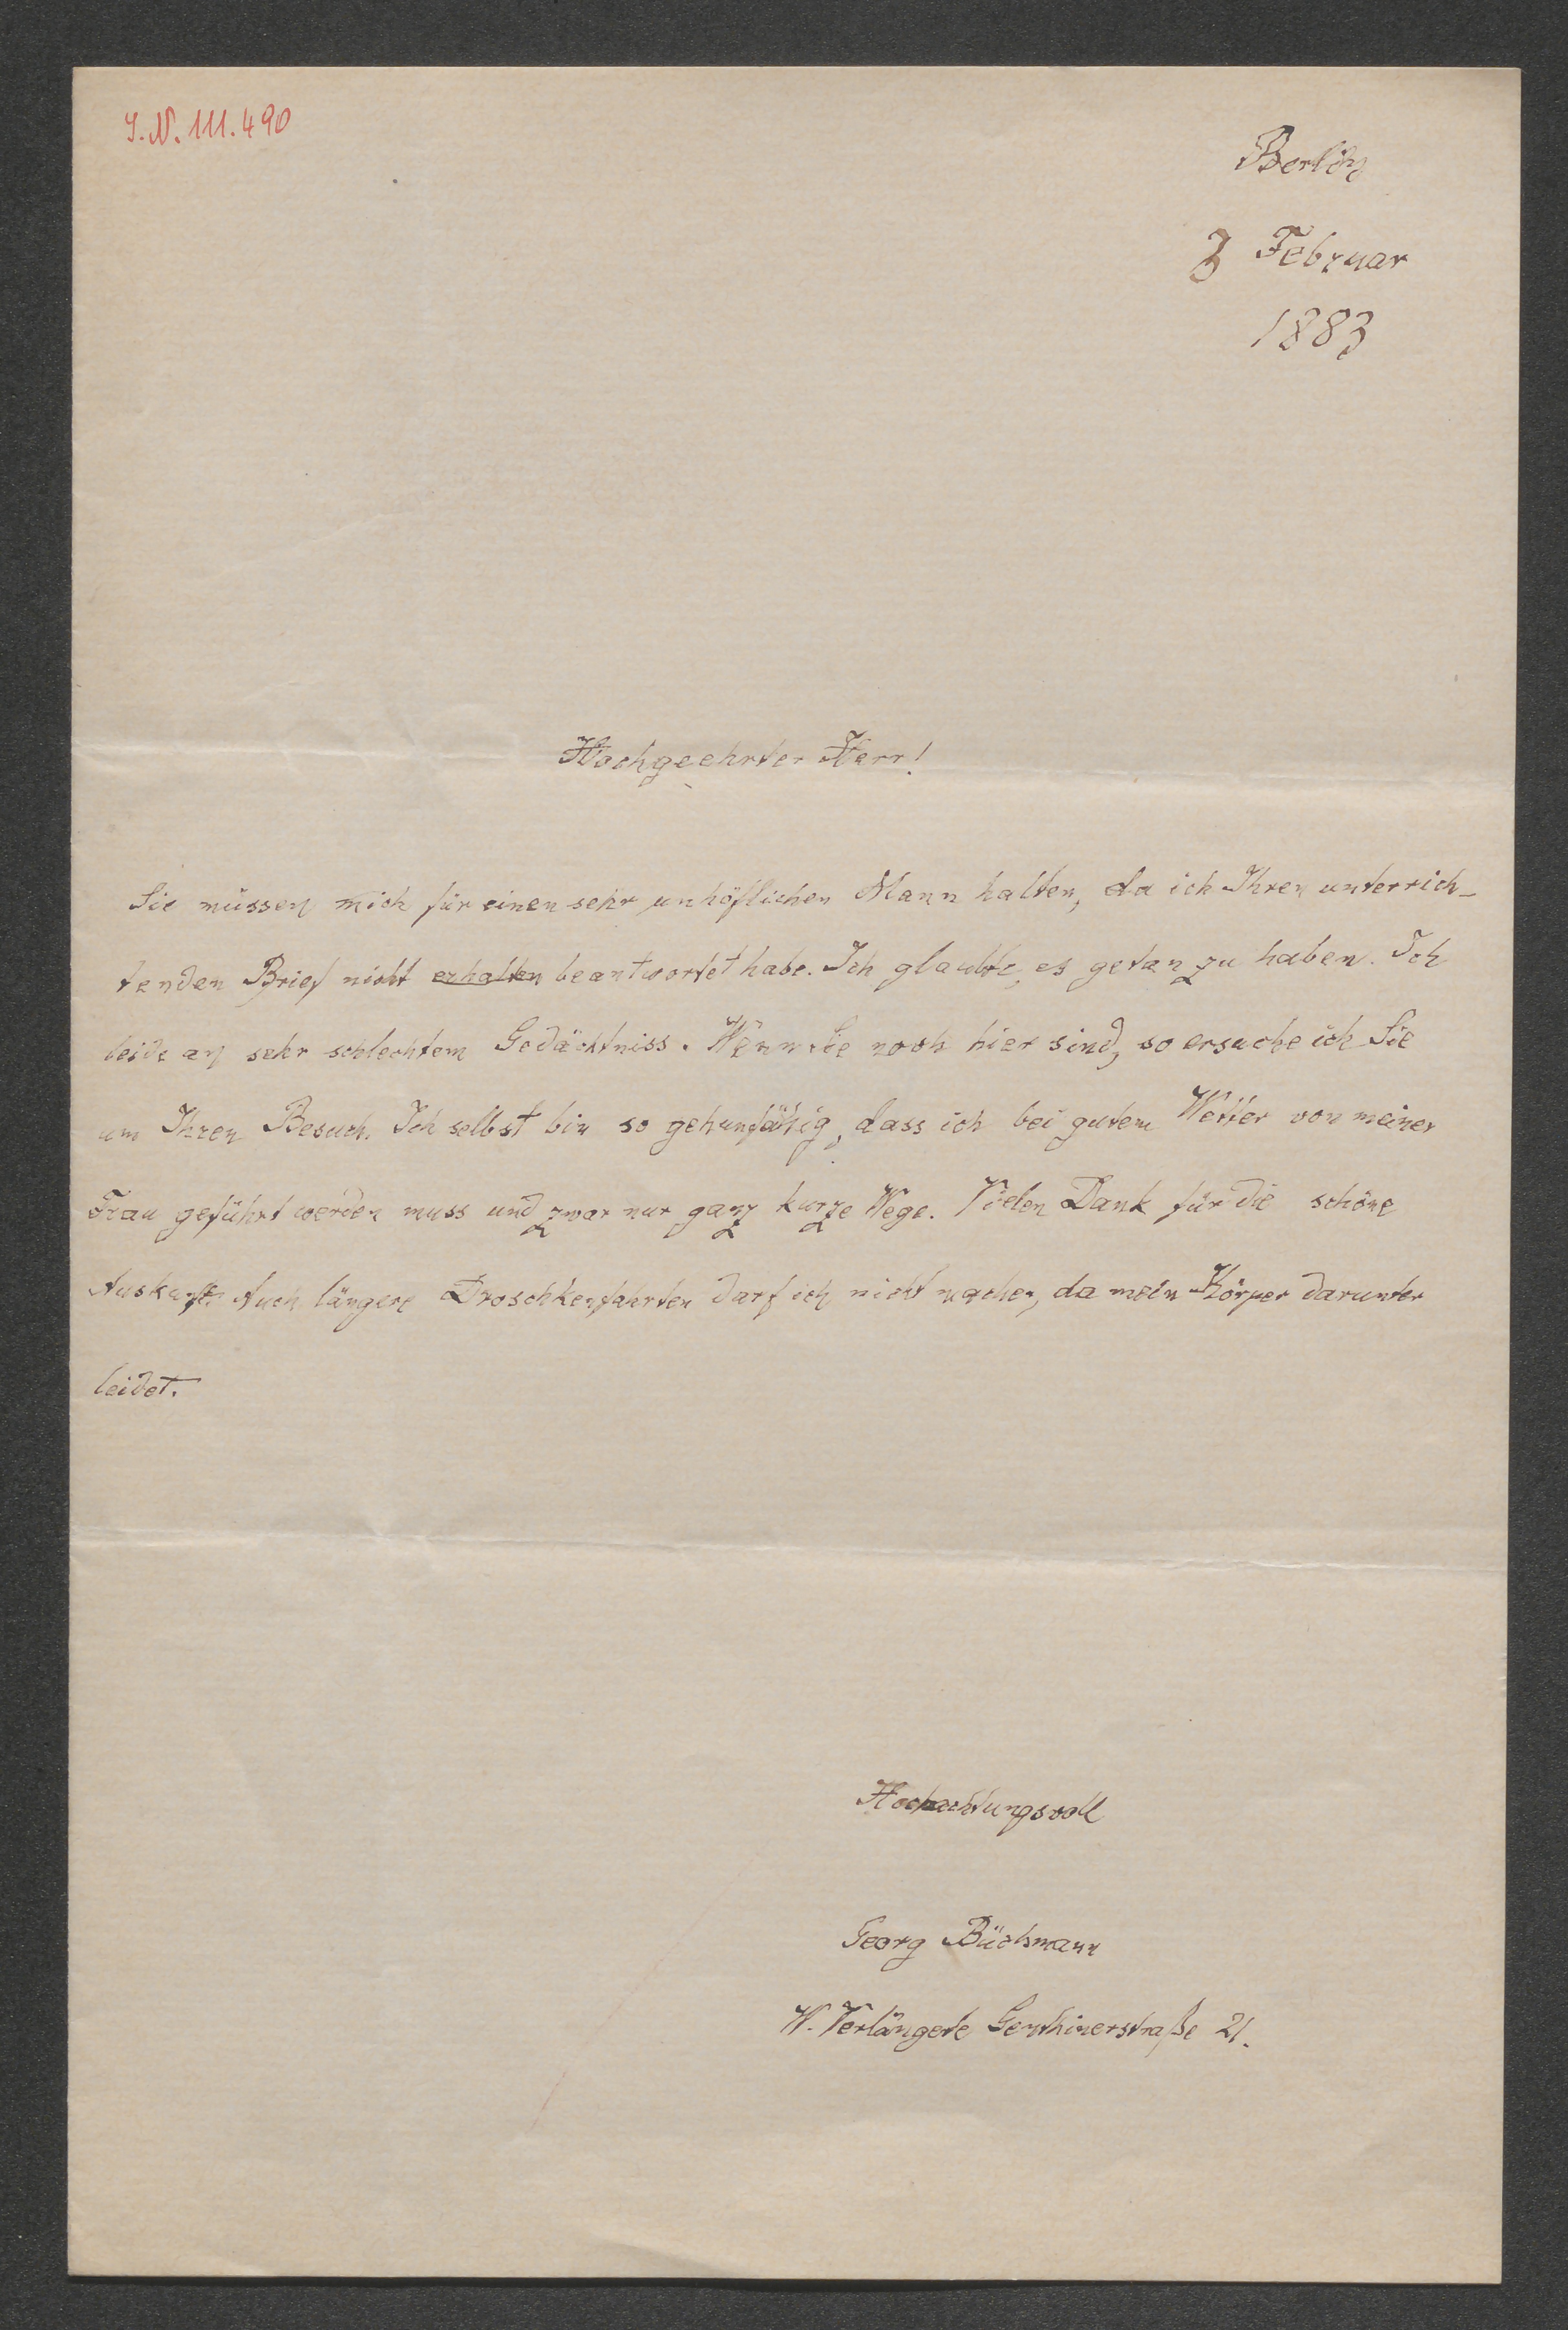 I.N. 111.490
Berlin
3 Februar
1883
Hochgeehrter Herr!
Sie müssen mich für einen sehr unhöflichen Mann halten, da ich Ihren unterrich-
tenden Brief nicht erhalten beantwortet habe. Ich glaubte, es getan zu haben. Ich
leide an sehr schlechtem Gedächtniss. Wenn Sie noch hier sind, so ersuche ich Sie
um Ihren Besuch. Ich selbst bin so gehunfähig, dass ich bei gutem Wetter von meiner
Frau geführt werden muss und zwar nur ganz kurze Wege. Vielen Dank für die schöne
Auskunft. Auch längere Droschkenfahrten darf ich nicht machen, da mein Körper darunter
leidet.
Hochachtungsvoll
Georg Büchmann
W. Verlängerte Genthinerstraße 21.